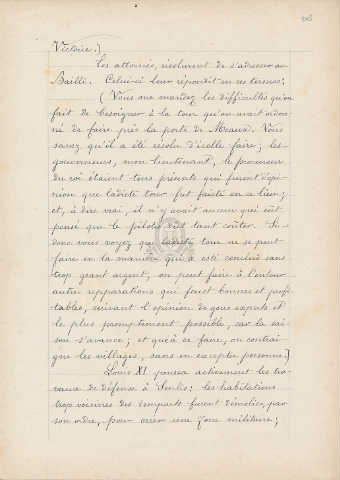 Victoire.)
Les attournés, résolurent de s'adresser au
Bailli. Celui-ci leur répondit en ces termes:
(Vous me mandez les difficultés qu'on
fait de besoigner à la tour qu'on avait ordon-
né de faire près la porte de Meaux. Vous
savez qu'il a été résolu d'icelle faire; les
gouverneurs, mon lieutenant, le procureur
du roi étaient tous présents qui furent d'opi-
nion que ladicte tour fut faicte en ce lieu;
et, à dire vrai, il n'y avait aucun qui eût
pensé que le pilotis dût tant coûter. Si
donc vous voyez que ladicte tour ne se peut
faire en la manière qui a esté conclud sans
trop grant argent, on peut faire à l'entour
autres réparations qui soient bonnes et profi-
tables, suivant l'opinion de gens experts et
le plus promptement possible, car la sai-
son s'avance; et qu'à ce faire, on contrai-
gne les villages, sans en excepter personne.)
Louis XI poussa activement les tra-
vaux de défense à Senlis: les habitations
trop voisines des remparts furent démolies, par
son ordre, pour créer une zone militaire;